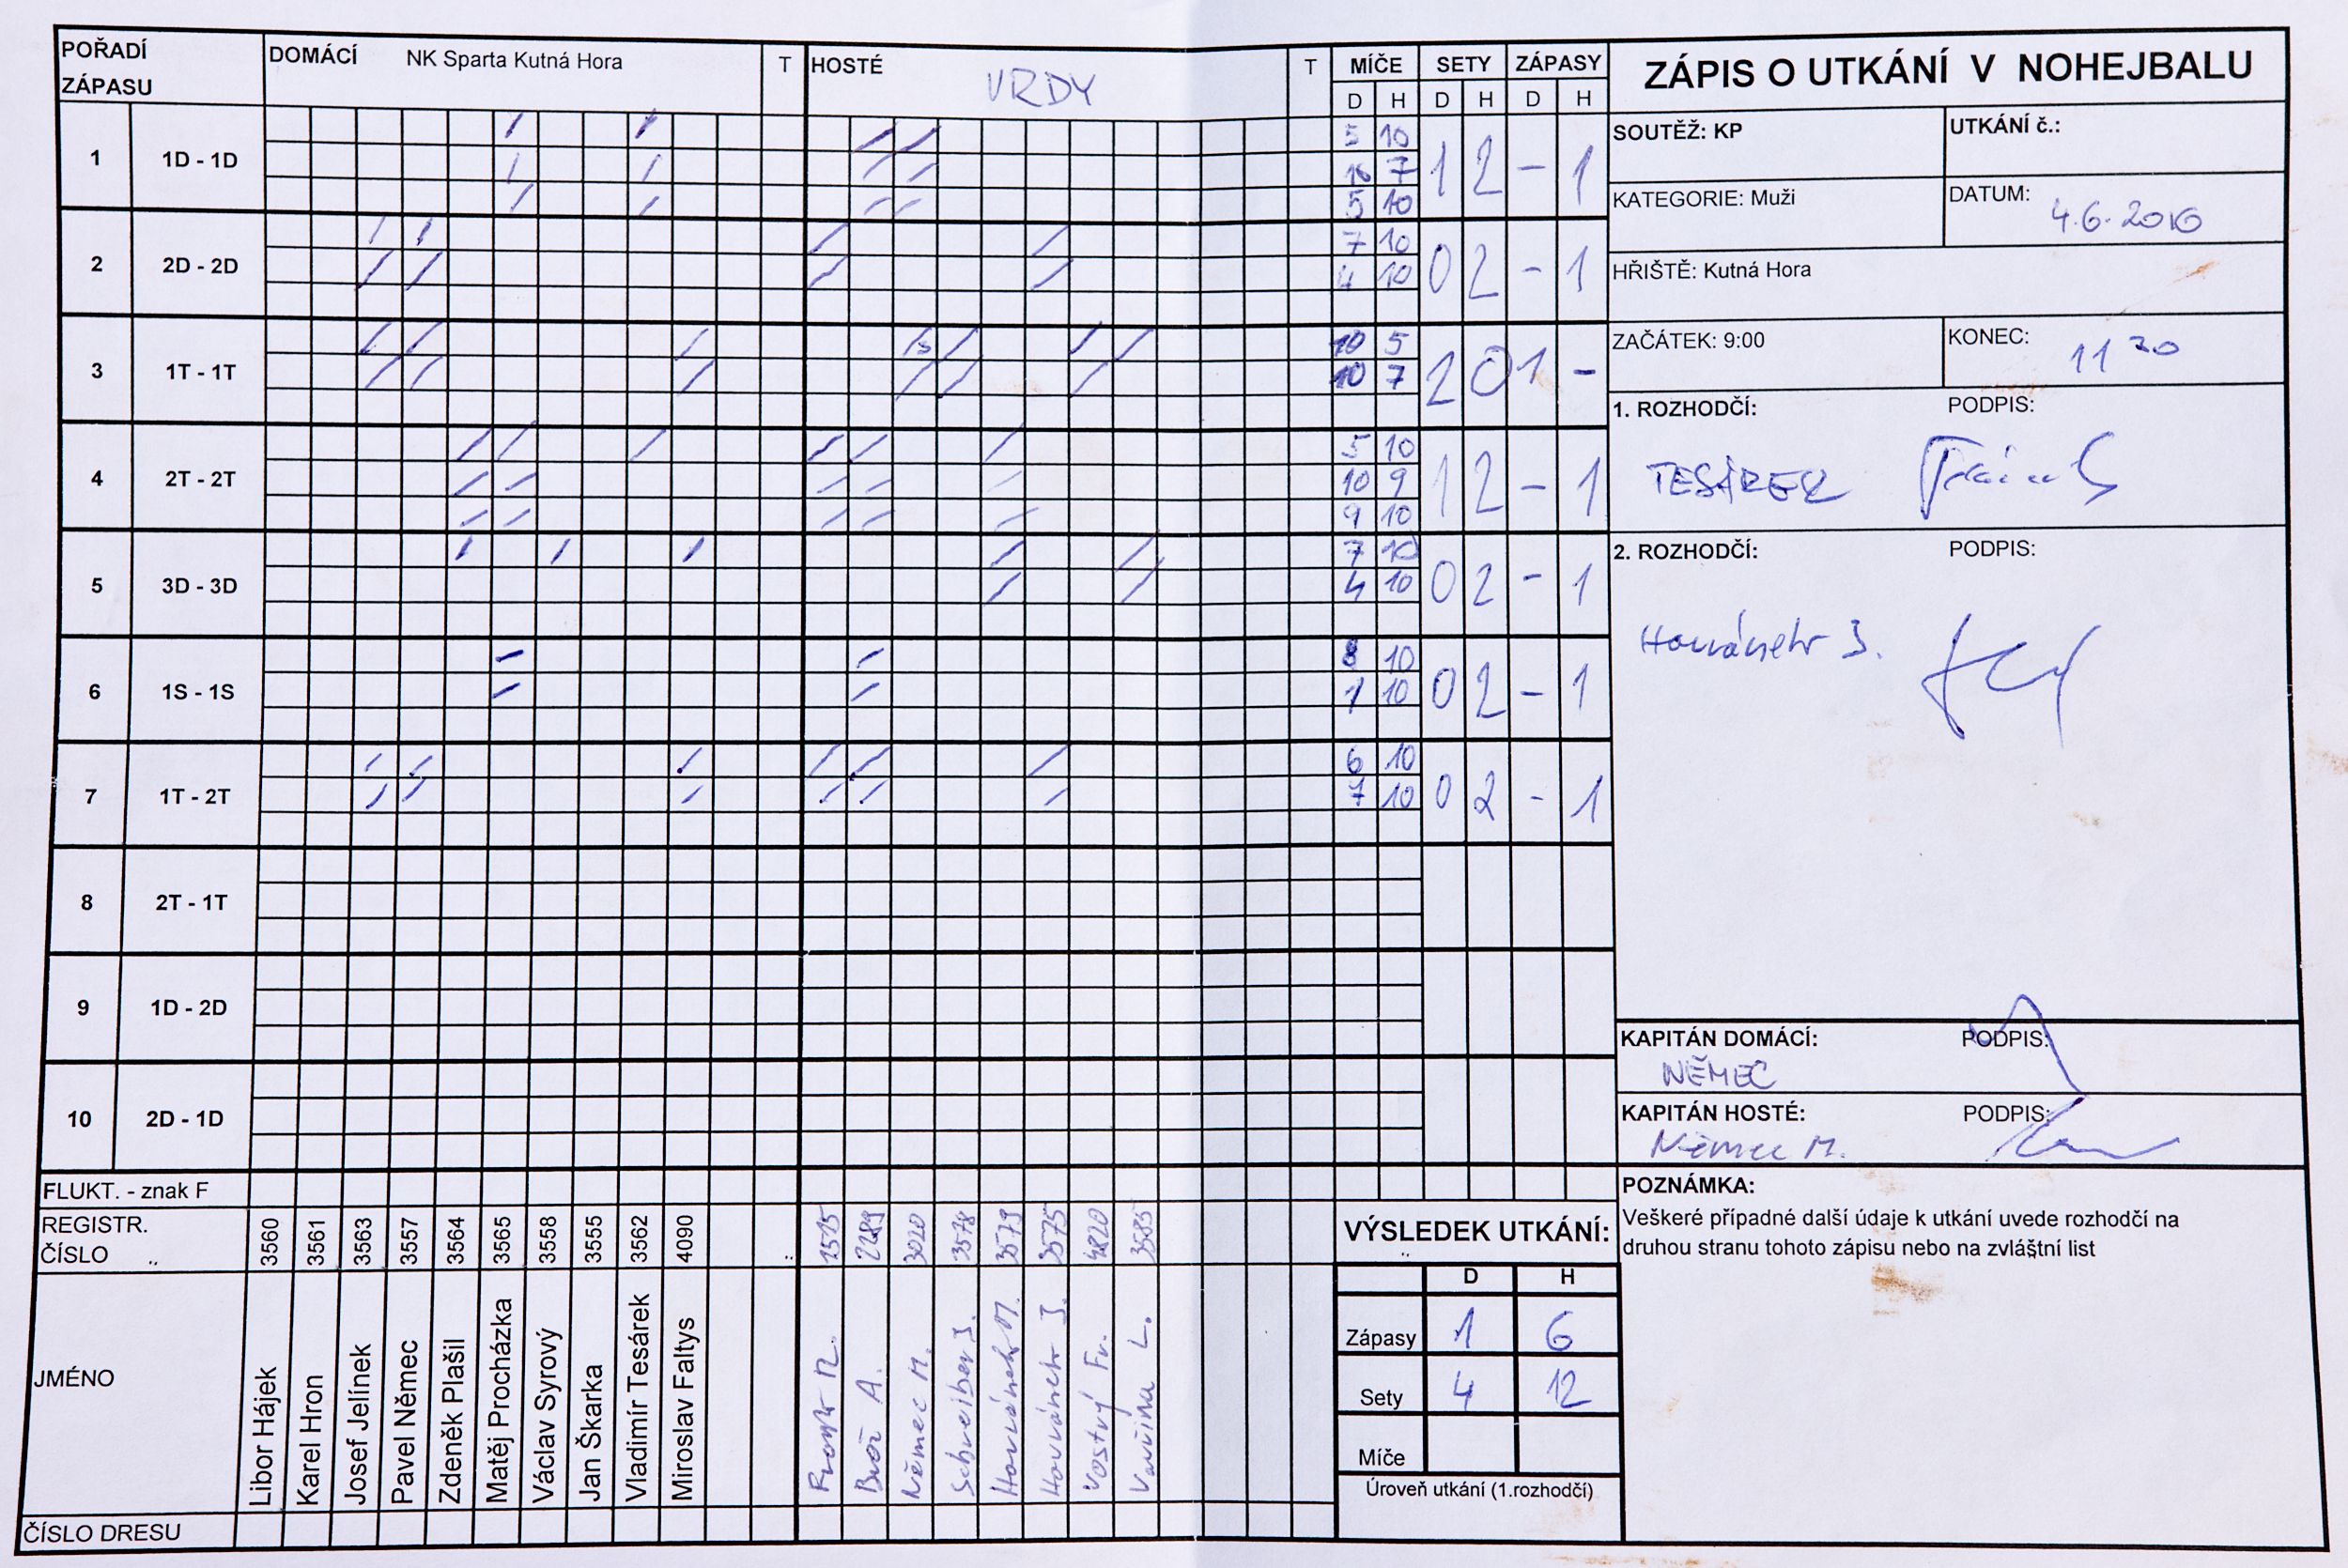 POŘADÍ ZÁPASU
DOMÁCÍ NK Sparta Kutná Hora T
HOSTÉ VRDY T
MÍČE SETY ZÁPASY
D H D H D H
ZÁPIS O UTKÁNÍ V NOHEJBALU
SOUTĚŽ: KP
UTKÁNÍ č.:
KATEGORIE: Muži
DATUM: 4.6.2016
HŘIŠTĚ: Kutná Hora
ZAČÁTEK: 9:00
KONEC: 11 20
1. ROZHODČÍ: PODPIS:
TESÁREK
2. ROZHODČÍ: PODPIS:
KAPITÁN DOMÁCÍ: PODPIS:
NĚMEC
KAPITÁN HOSTÉ: PODPIS:
Němec M.
POZNÁMKA:
Veškeré případné další údaje k utkání uvede rozhodčí na
druhou stranu tohoto zápisu nebo na zvláštní list
1 1D - 1D 1 2 - 1
5 10
10 7
5 10
2 2D - 2D 0 2 - 1
7 10
4 10
3 1T - 1T 2 0 1 -
10 5
10 7
4 2T - 2T 1 2 - 1
5 10
10 9
9 10
5 3D - 3D 0 2 - 1
7 10
4 10
6 1S - 1S 0 2 - 1
8 10
1 10
7 1T - 2T 0 2 - 1
6 10
7 10
8 2T - 1T
9 1D - 2D
10 2D - 1D
FLUKT. - znak F
REGISTR. ČÍSLO
3560 3561 3563 3557 3564 3565 3558 3555 3562 4090
1515 2289 3020 3578 3579 3575 4820 3585
JMÉNO
Libor Hájek
Karel Hron
Josef Jelínek
Pavel Němec
Zdeněk Plašil
Matěj Procházka
Václav Syrový
Jan Škarka
Vladimír Tesárek
Miroslav Faltys
A.
Němec M.
Schreiber J.
M.
J.
Vostrý Fr.
L.
ČÍSLO DRESU
VÝSLEDEK UTKÁNÍ:
D H
Zápasy 1 6
Sety 4 12
Míče
Úroveň utkání (1.rozhodčí)